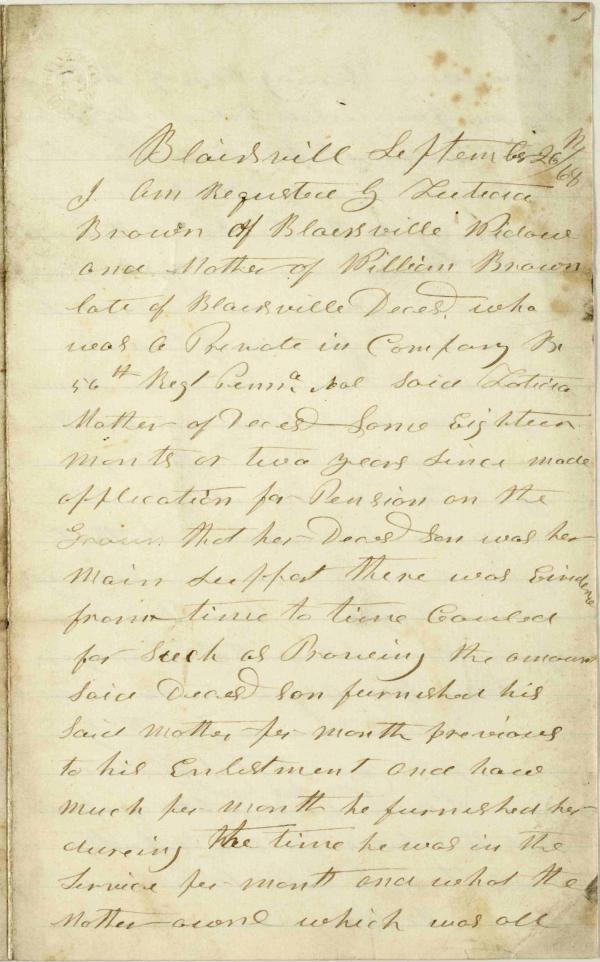 Blairsvill September 26th/68
I Am Requsted by Luticia
Brown of Blairsville Widow
and Mother of William Brown
late of Blairsville Decesd. who
was a Private in Company
56th Regt Penna. Vol said Laticia
Mother of Decesd Some Eighteen
Months or two years since made
application for Pension on the
Groun that her Decesd son was her
Main support there was Eindence
from time to time Couled
for Such as Proveing the amount
said Decesd son furnished his
said Mother per month previous
to his Enlistment and how
much per month he furnished her
dureing the time he was in the
Service per month and what the
Mother ownd which was all